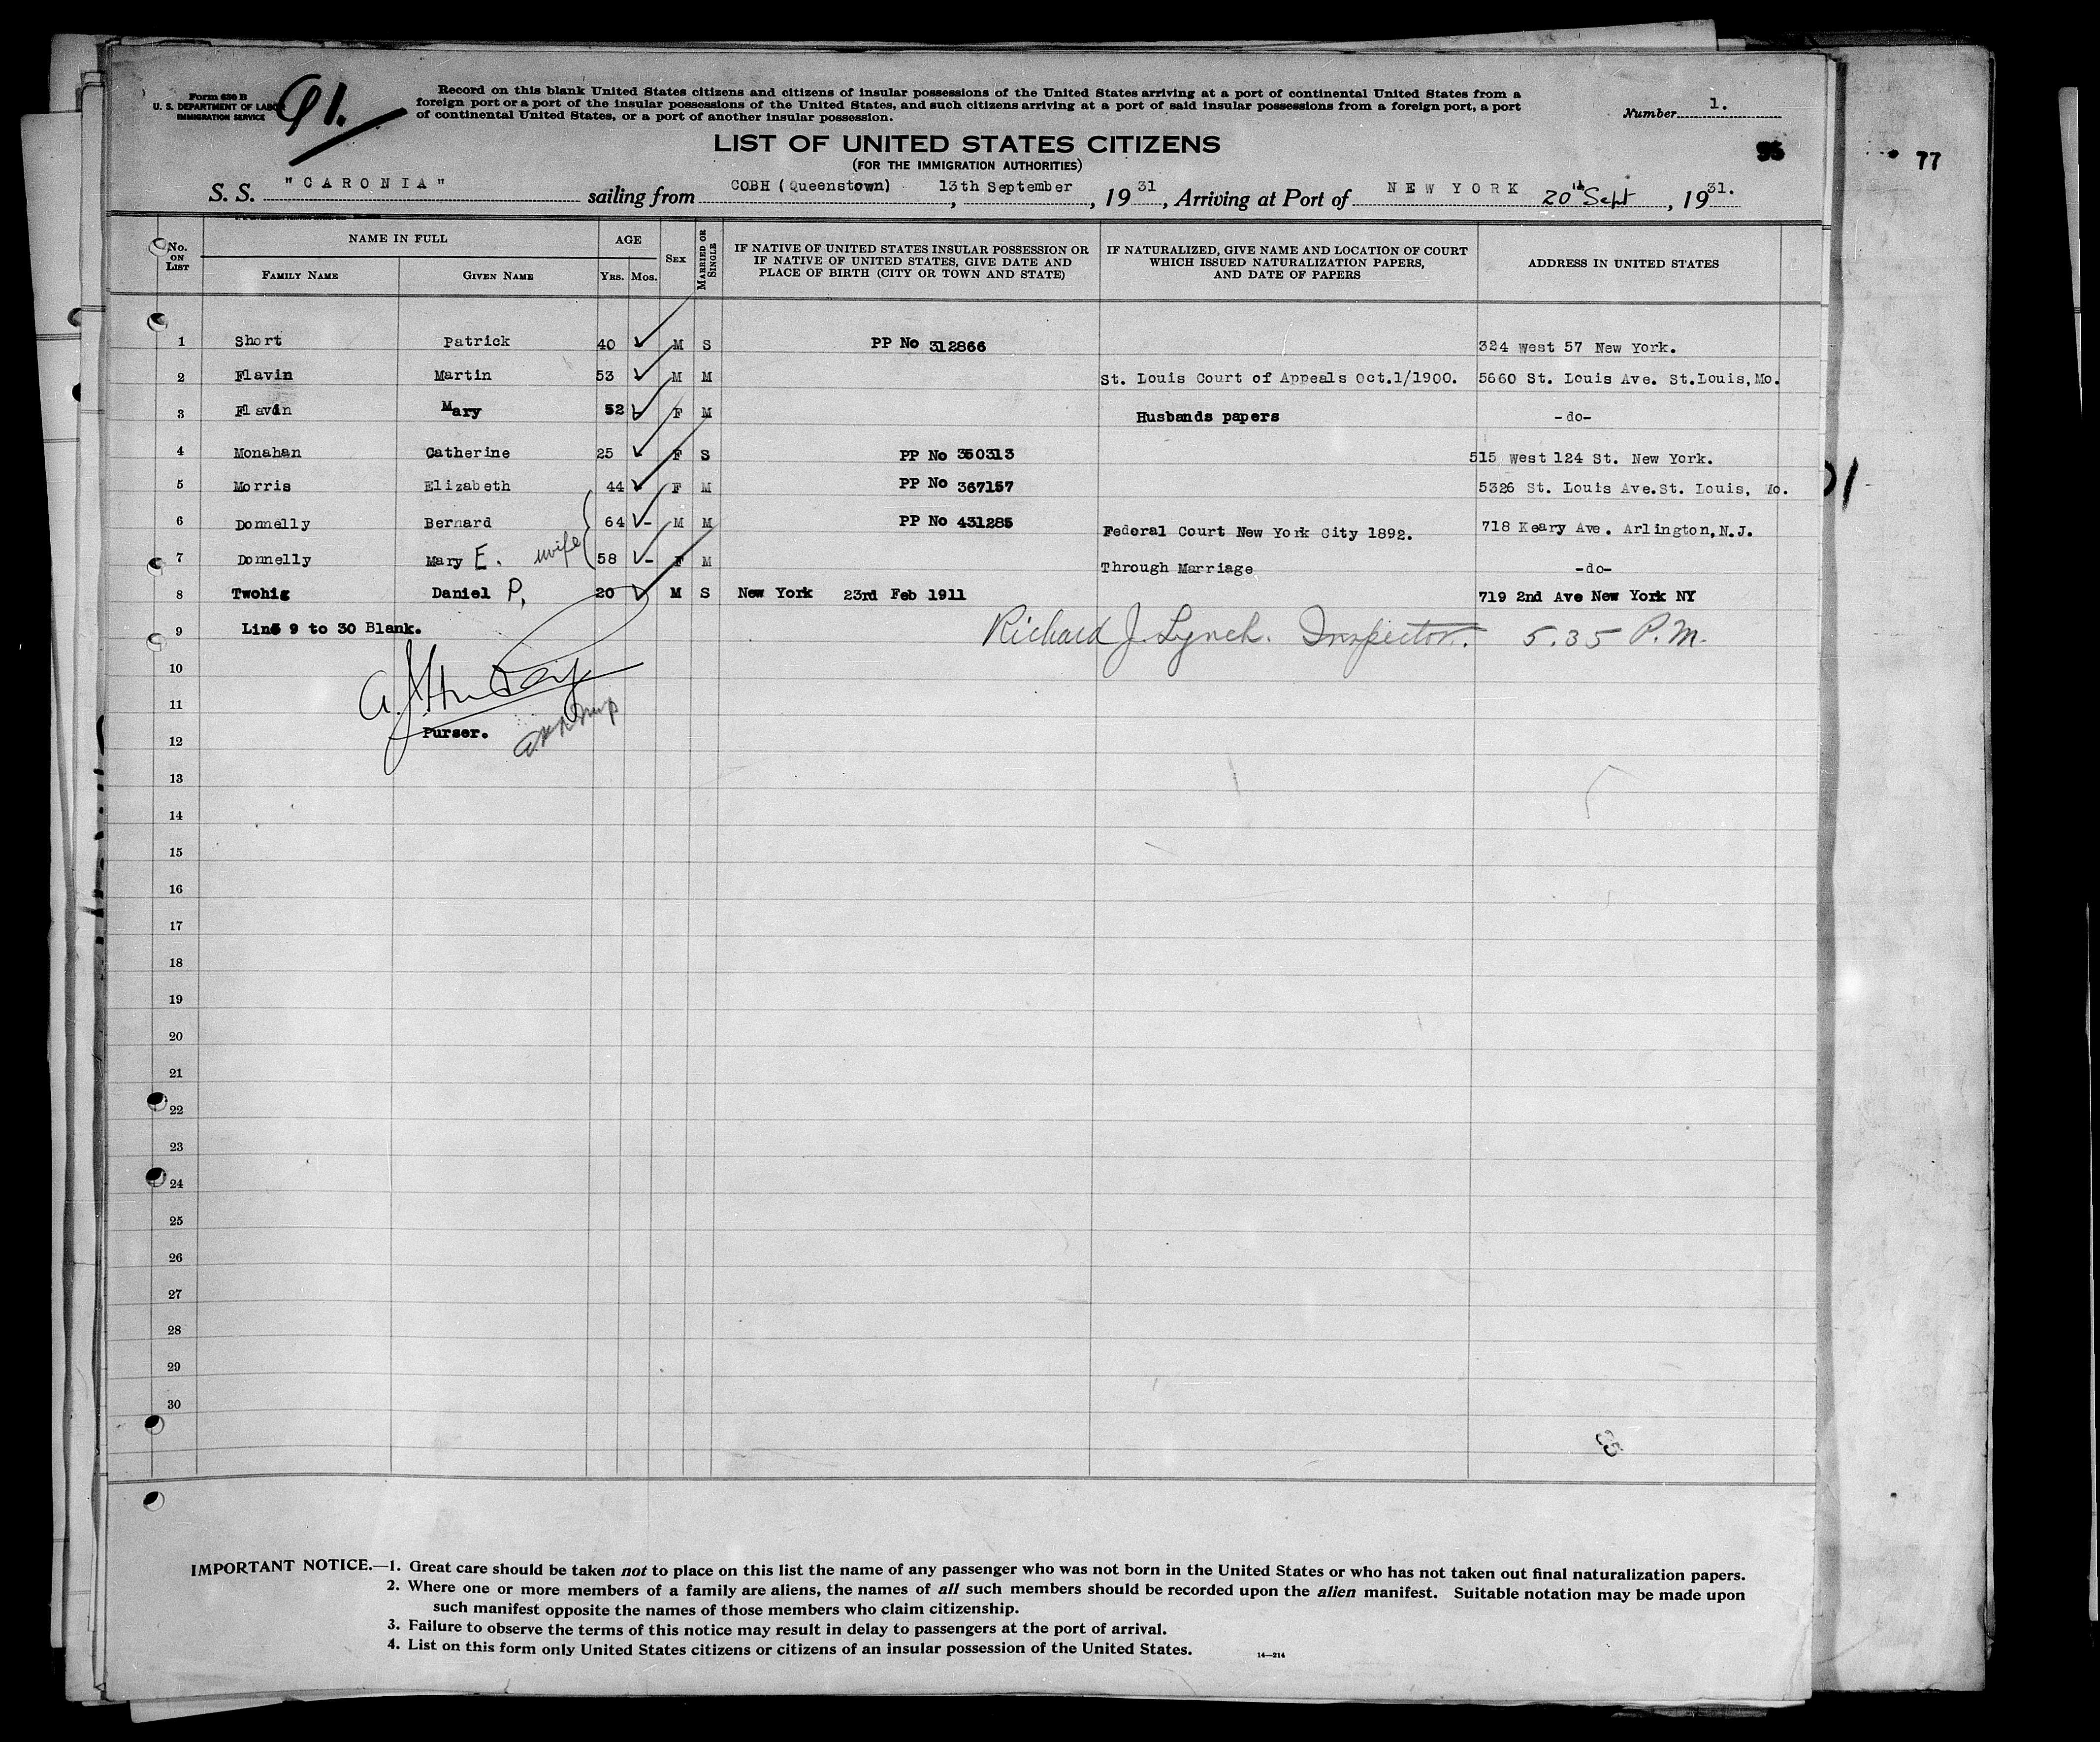 Form 630 B
U. S. DEPARTMENT OF LABOR
IMMIGRATION SERVICE
91.
Record on this blank United States citizens and citizens of insular possessions of the United States arriving at a port of continental United States from a
foreign port or a port of the insular possessions of the United States, and such citizens arriving at a port of said insular possessions from a foreign port, a port
of continental United States, or a port of another insular possession.
Number 1.
LIST OF UNITED STATES CITIZENS
(FOR THE IMMIGRATION AUTHORITIES)
77
S. S. "CARONIA" sailing from COBH (Queenstown), 13th September, 1931, Arriving at Port of NEW YORK 20th Sept, 1931.
No. ON LIST NAME IN FULL FAMILY NAME GIVEN NAME AGE YRS. MOS. SEX MARRIED OR SINGLE IF NATIVE OF UNITED STATES INSULAR POSSESSION OR IF NATIVE OF UNITED STATES, GIVE DATE AND PLACE OF BIRTH (CITY OR TOWN AND STATE) IF NATURALIZED, GIVE NAME AND LOCATION OF COURT WHICH ISSUED NATURALIZATION PAPERS, AND DATE OF PAPERS ADDRESS IN UNITED STATES
1 Short Patrick 40 M S PP No 312866 324 West 57 New York.
2 Flavin Martin 53 M M St. Louis Court of Appeals Oct.1/1900. 5660 St. Louis Ave. St.Louis,Mo.
3 Flavin Mary 52 F M Husbands papers -do-
4 Monahan Catherine 25 F S PP No 350313 515 West 124 St. New York.
5 Morris Elizabeth 44 F M PP No 367157 5326 St. Louis Ave.St. Louis, Mo.
6 Donnelly Bernard 64 M M PP No 431285 Federal Court New York City 1892. 718 Keary Ave. Arlington,N.J.
7 Donnelly Mary E. wife 58 F M Through Marriage -do-
8 Twohig Daniel P. 20 M S New York 23rd Feb 1911 719 2nd Ave New York NY
9 Line 9 to 30 Blank. Richard J. Lynch. Inspector. 5.35 P.M.
10
11
Purser.
12
13
14
15
16
17
18
19
20
21
22
23
24
25
26
27
28
29
30
IMPORTANT NOTICE.—1. Great care should be taken not to place on this list the name of any passenger who was not born in the United States or who has not taken out final naturalization papers.
2. Where one or more members of a family are aliens, the names of all such members should be recorded upon the alien manifest. Suitable notation may be made upon
such manifest opposite the names of those members who claim citizenship.
3. Failure to observe the terms of this notice may result in delay to passengers at the port of arrival.
4. List on this form only United States citizens or citizens of an insular possession of the United States.
14—214